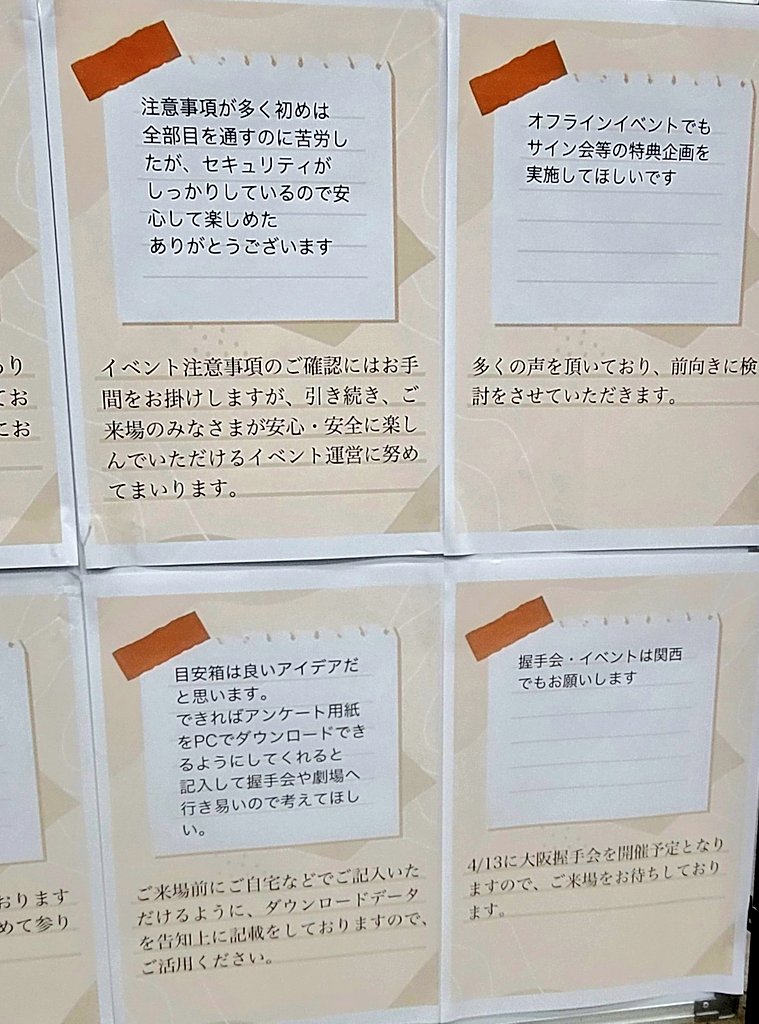 注意事項が多く初めは
全部目を通すのに苦労し
たが、セキュリティが
しっかりしているので安
心して楽しめた
ありがとうございます
イベント注意事項のご確認にはお手
間をお掛けしますが、引き続き、ご
来場のみなさまが安心・安全に楽し
んでいただけるイベント運営に努め
てまいります。
オフラインイベントでも
サイン会等の特典企画を
実施してほしいです
多くの声を頂いており、前向きに検
討をさせていただきます。
り
てお
にお
目安箱は良いアイデアだ
と思います。
できればアンケート用紙
をPCでダウンロードでき
るようにしてくれると
記入して握手会や劇場へ
行き易いので考えてほし
い。
ご来場前にご自宅などでご記入いた
だけるように、ダウンロードデータ
を告知上に記載をしておりますので、
ご活用ください。
握手会・イベントは関西
でもお願いします
4/13に大阪握手会を開催予定となり
ますので、ご来場をお待ちしており
ます。
おります
めて参り